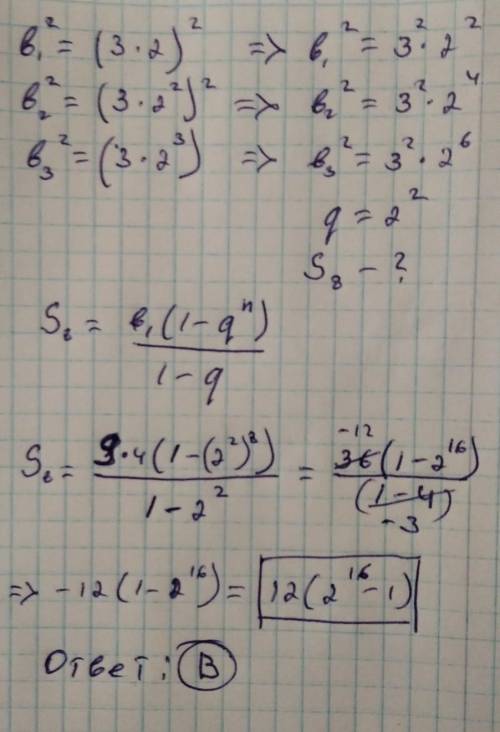 b₁² = (3 · 2)² => b₁² = 3² · 2²
b₂² = (3 · 2²)² => b₂² = 3² · 2⁴
b₃² = (3 · 2³) => b₃² = 3² · 2⁶
q = 2²
S₈ - ?
S₈ = b₁(1 - qⁿ) / 1 - q
S₈ = 9·4(1 - (2²)⁸) / 1 - 2² = -12 36(1 - 2¹⁶) / (1 - 4) -3
=> -12(1 - 2¹⁶) = 12(2¹⁶ - 1)
Ответ: В